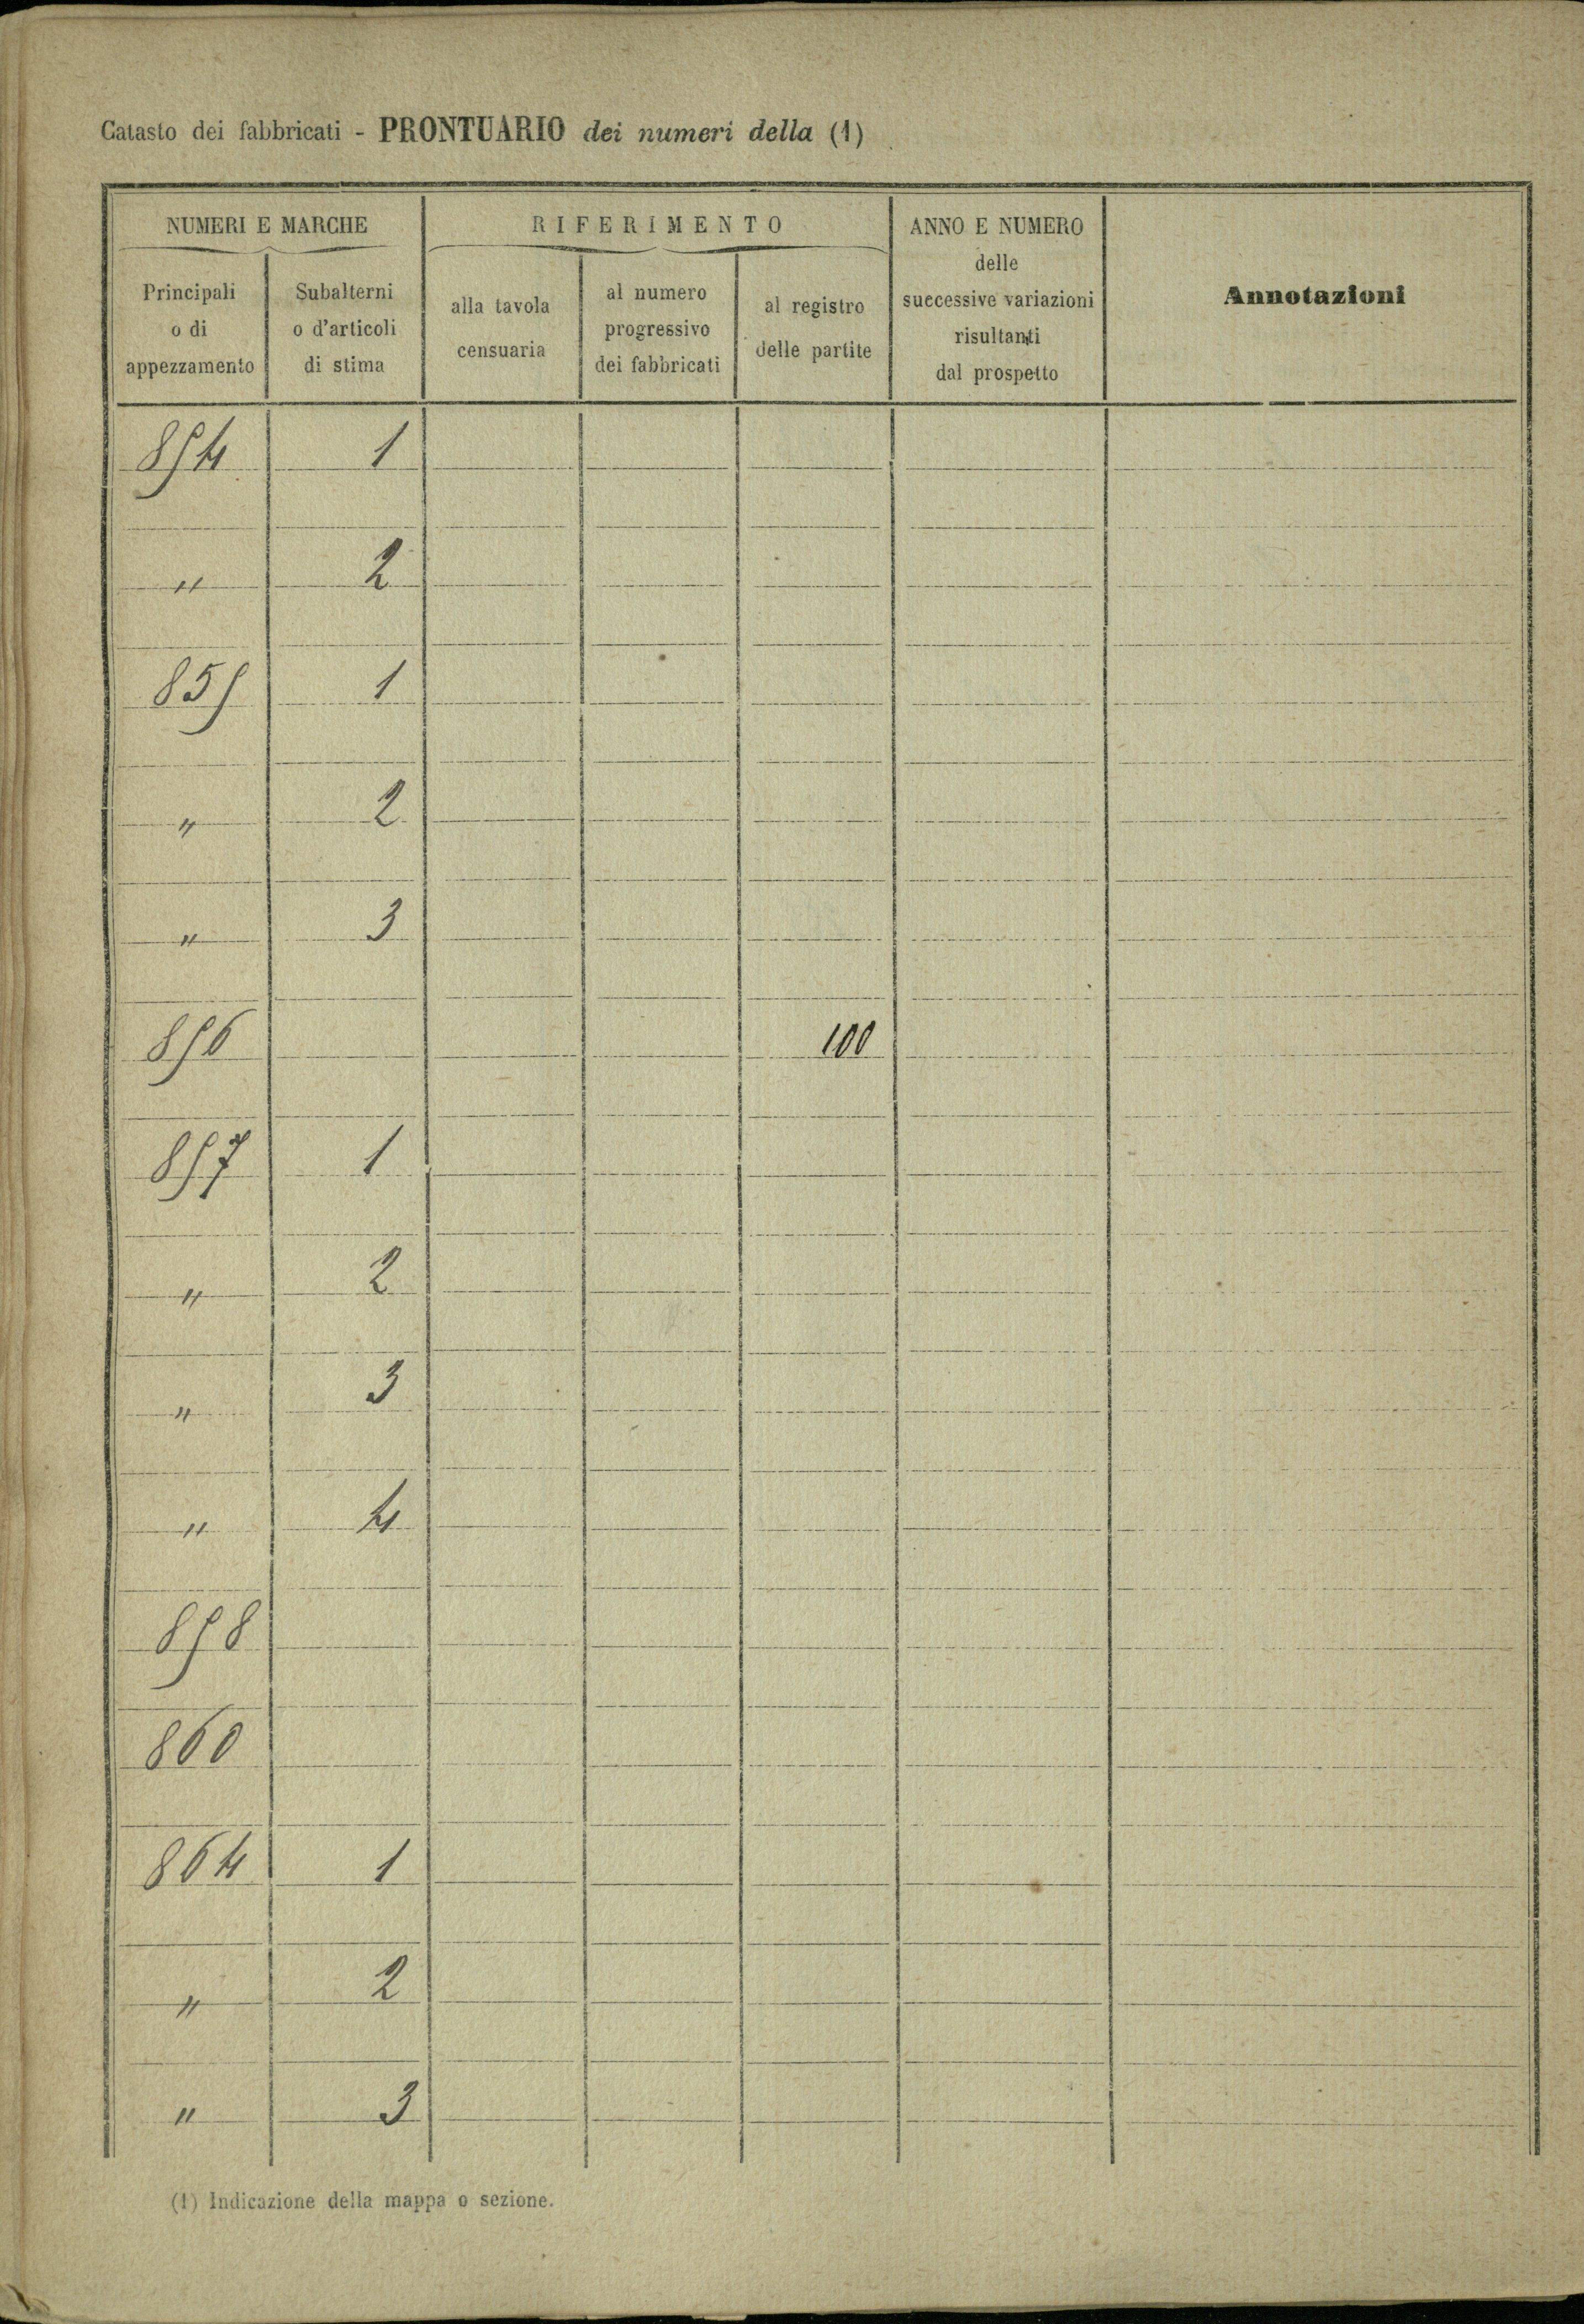 Catasto dei fabbricati - PRONTUARIO dei numeri della (1)
NUMERI E MARCHE
RIFERIMENTO
ANNO E NUMERO
delle
successive variazioni
risultanti
dal prospetto
Annotazioni
Principali
o di
appezzamento
Subalterni
o d'articoli
di stima
alla tavola
censuaria
al numero
progressivo
dei fabbricati
al registro
delle partite
854 1
" 2
855 1
" 2
" 3
856 100
857 1
" 2
" 3
" 4
858
860
864 1
" 2
" 3
(1) Indicazione della mappa o sezione.